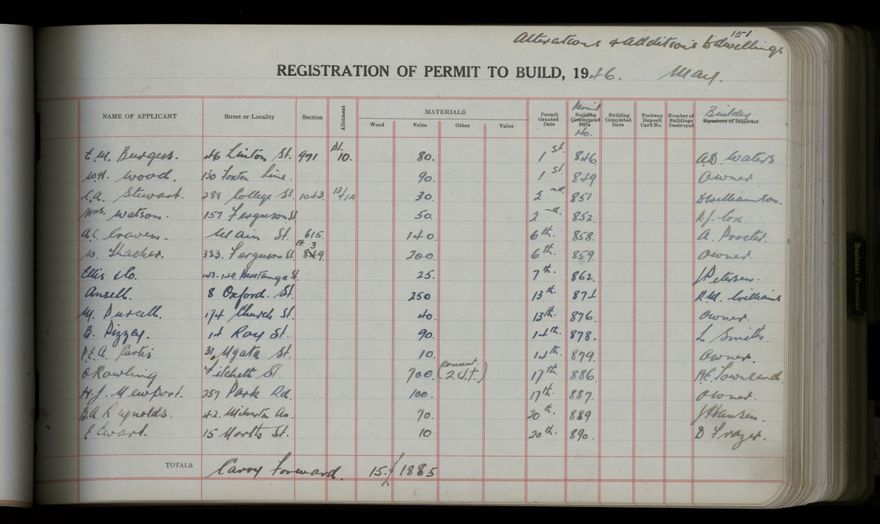 151
Alterations & additions to dwellings
REGISTRATION OF PERMIT TO BUILD, 1946. May.
NAME OF APPLICANT Street or Locality Section Allotment MATERIALS Permit Granted Date Permit Building Commenced Date No. Building Completed Date Footway Deposit Card No. Number of Buildings Destroyed Builder Signature of Inspector
Wood Value Other Value
E. M. Burgess. 46 Linton St. 971 Pt. 10. 80. 1st. 846 A.D. Waters
W.H. Wood. 130 Line. 90. 1st. 849 Owner
C.A. Stewart. 288 College St. 1043 30. 2nd. 851 Williamson.
Watson. 157 Ferguson St 50. 2nd. 852 Cox.
A.C. Craven. Main St. 615. 140. 6th. 858 A. Procter.
W. Thacker. 323. Ferguson St. Pt 3 849. 200. 6th. 859 Owner.
Ellis & Co. 143-149 Rangitikei St. 25. 7th. 862. J Petersen.
Ansell. 8 Oxford St. 250 13th. 874 R.M. Williams
M. Purcell. 174 Church St. 40. 13th. 876. Owner.
B. Pizzey. 14 Roy St. 90. 14th. 878. L Smith.
P.E.A. Curtis 31 Ngata St. 10. 14th. 879. Owner.
Rowling Fitchett St. 700. (Convert 2 U.f.) 17th 886 H.C. Townsend.
H. J. Newport. 257 Park Rd. 100. 17th. 887. Owner.
B.A. Reynolds. 42. Av. 70. 20th. 889 J Hansen.
E Ewart. 15 North St. 10 20th. 890. D Frazer.
TOTALS Carry Forward. 15./ 1885
Business Premises